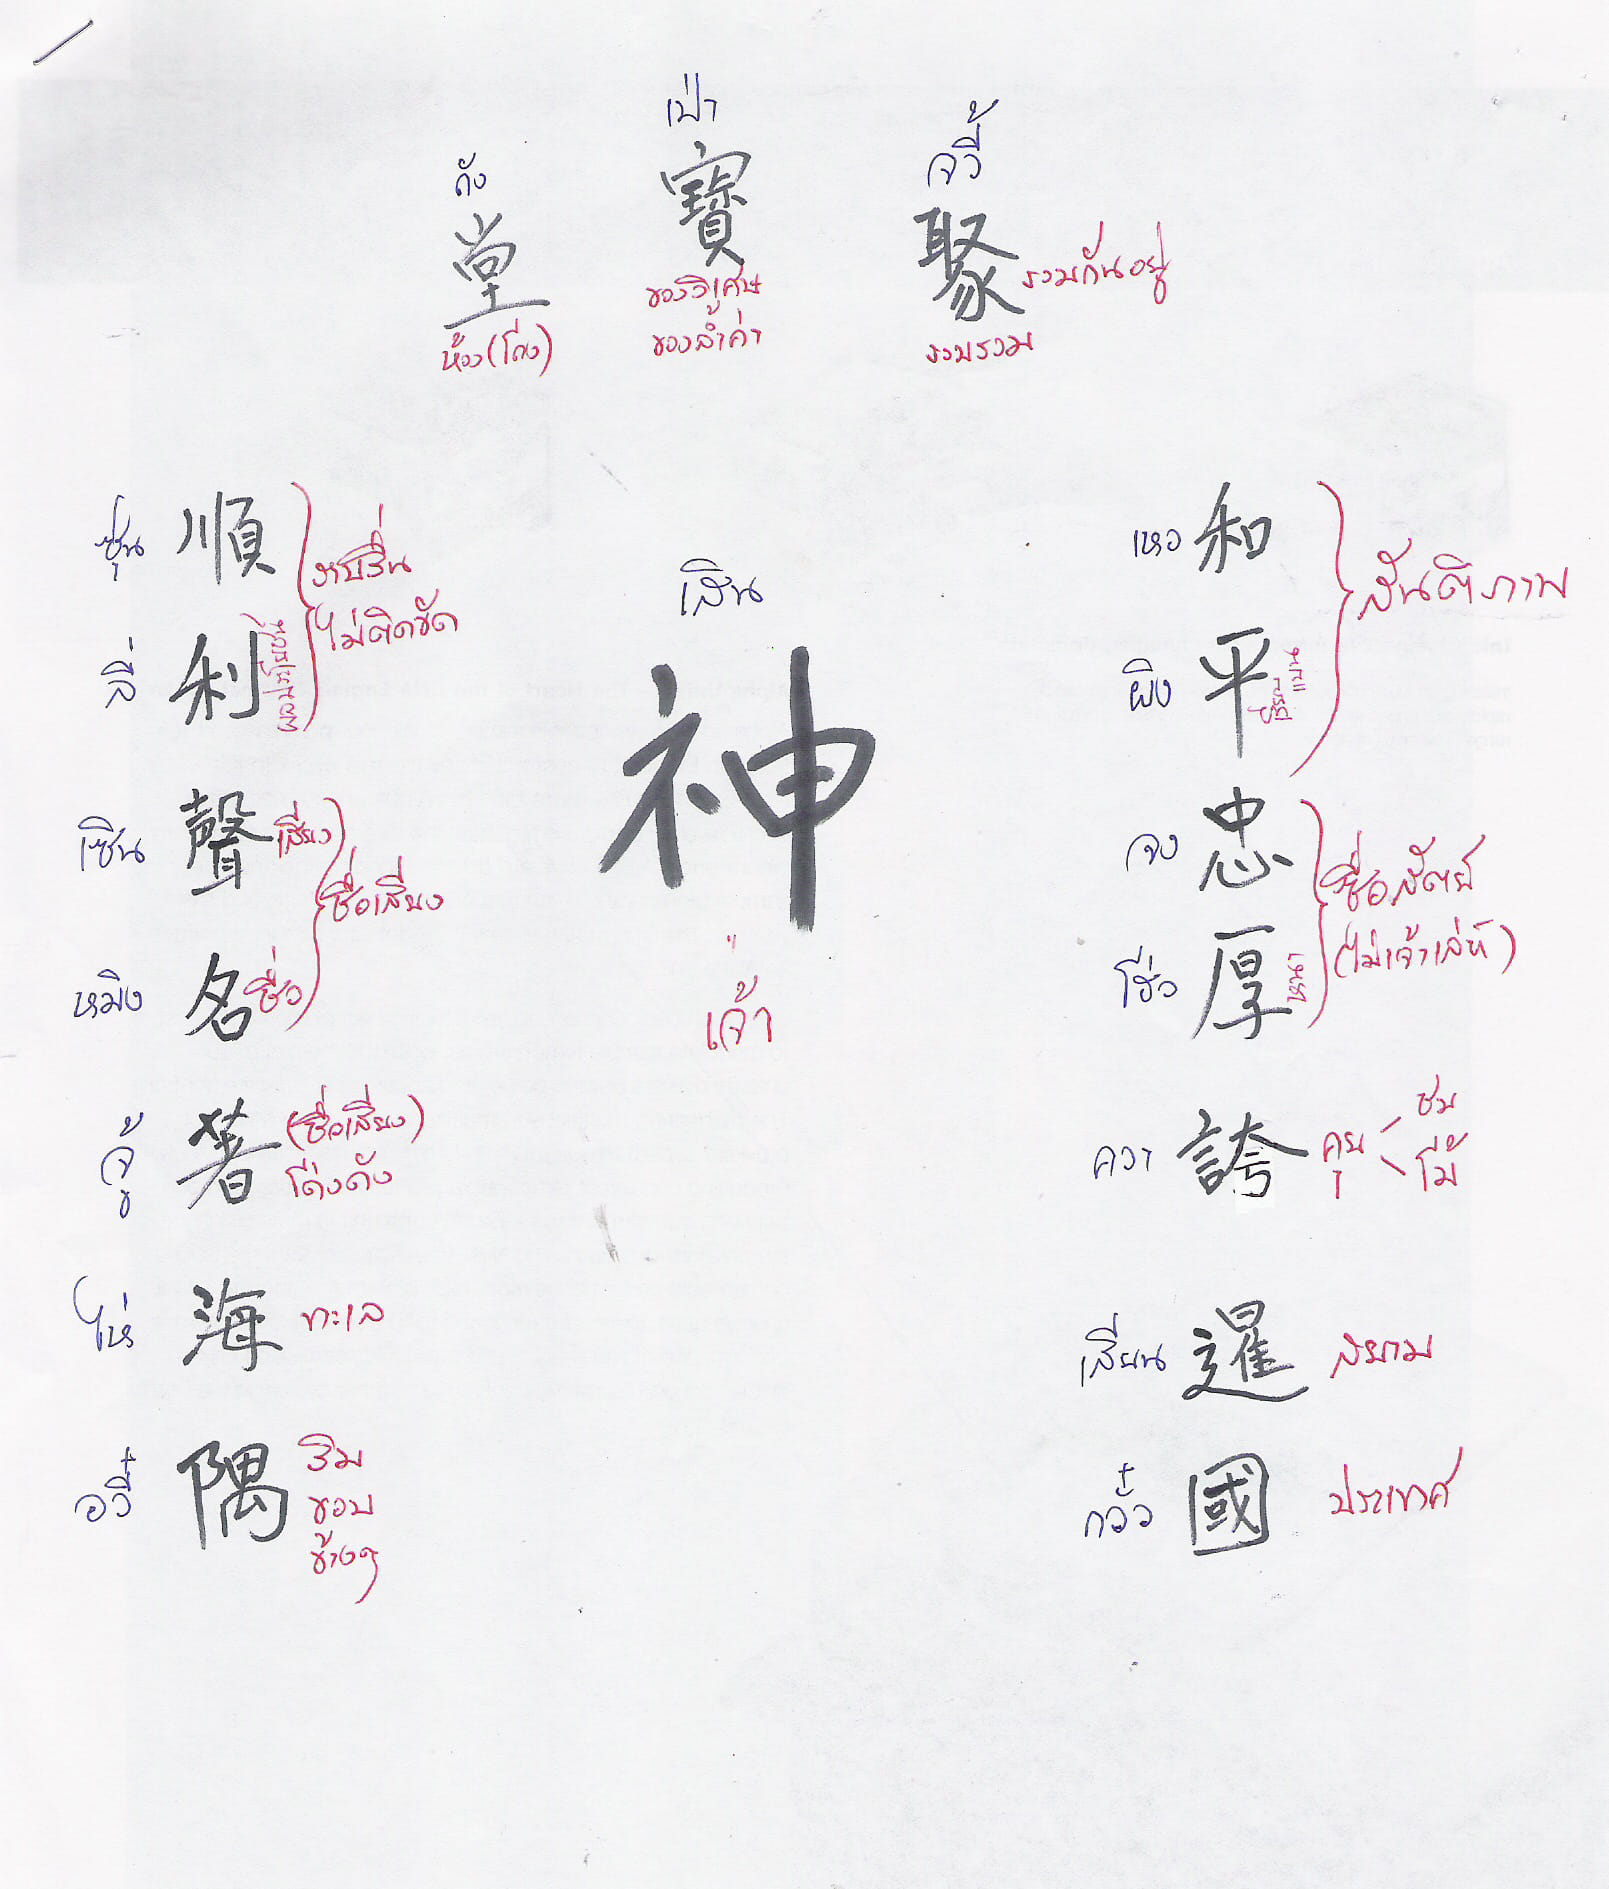 ถัง เป่า จวี้
堂 寶 聚 รวมกันอยู่
ห้อง(โถง) ของวิเศษ รวบรวม
ของล้ำค่า
ซุ่น 順 ราบรื่น
ไม่ติดขัด
ลี่ 利 ผลประโยชน์
เซิน 聲 เสียง
ชื่อเสียง
หมิง 名 ชื่อ
จู้ 著 (ชื่อเสียง)
โด่งดัง
ไห่ 海 ทะเล
อวี๋ 隅 ริม
ขอบ
ข้างๆ
เสิน
神
เจ้า
เหอ 和 สันติภาพ
ผิง 平
จง 忠 ซื่อสัตย์
(ไม่เจ้าเล่ห์)
โฮ่ว 厚 หนา
ควา 誇 คุย ชม
โม้
เสียน 暹 สยาม
กว๋อ 國 ประเทศ